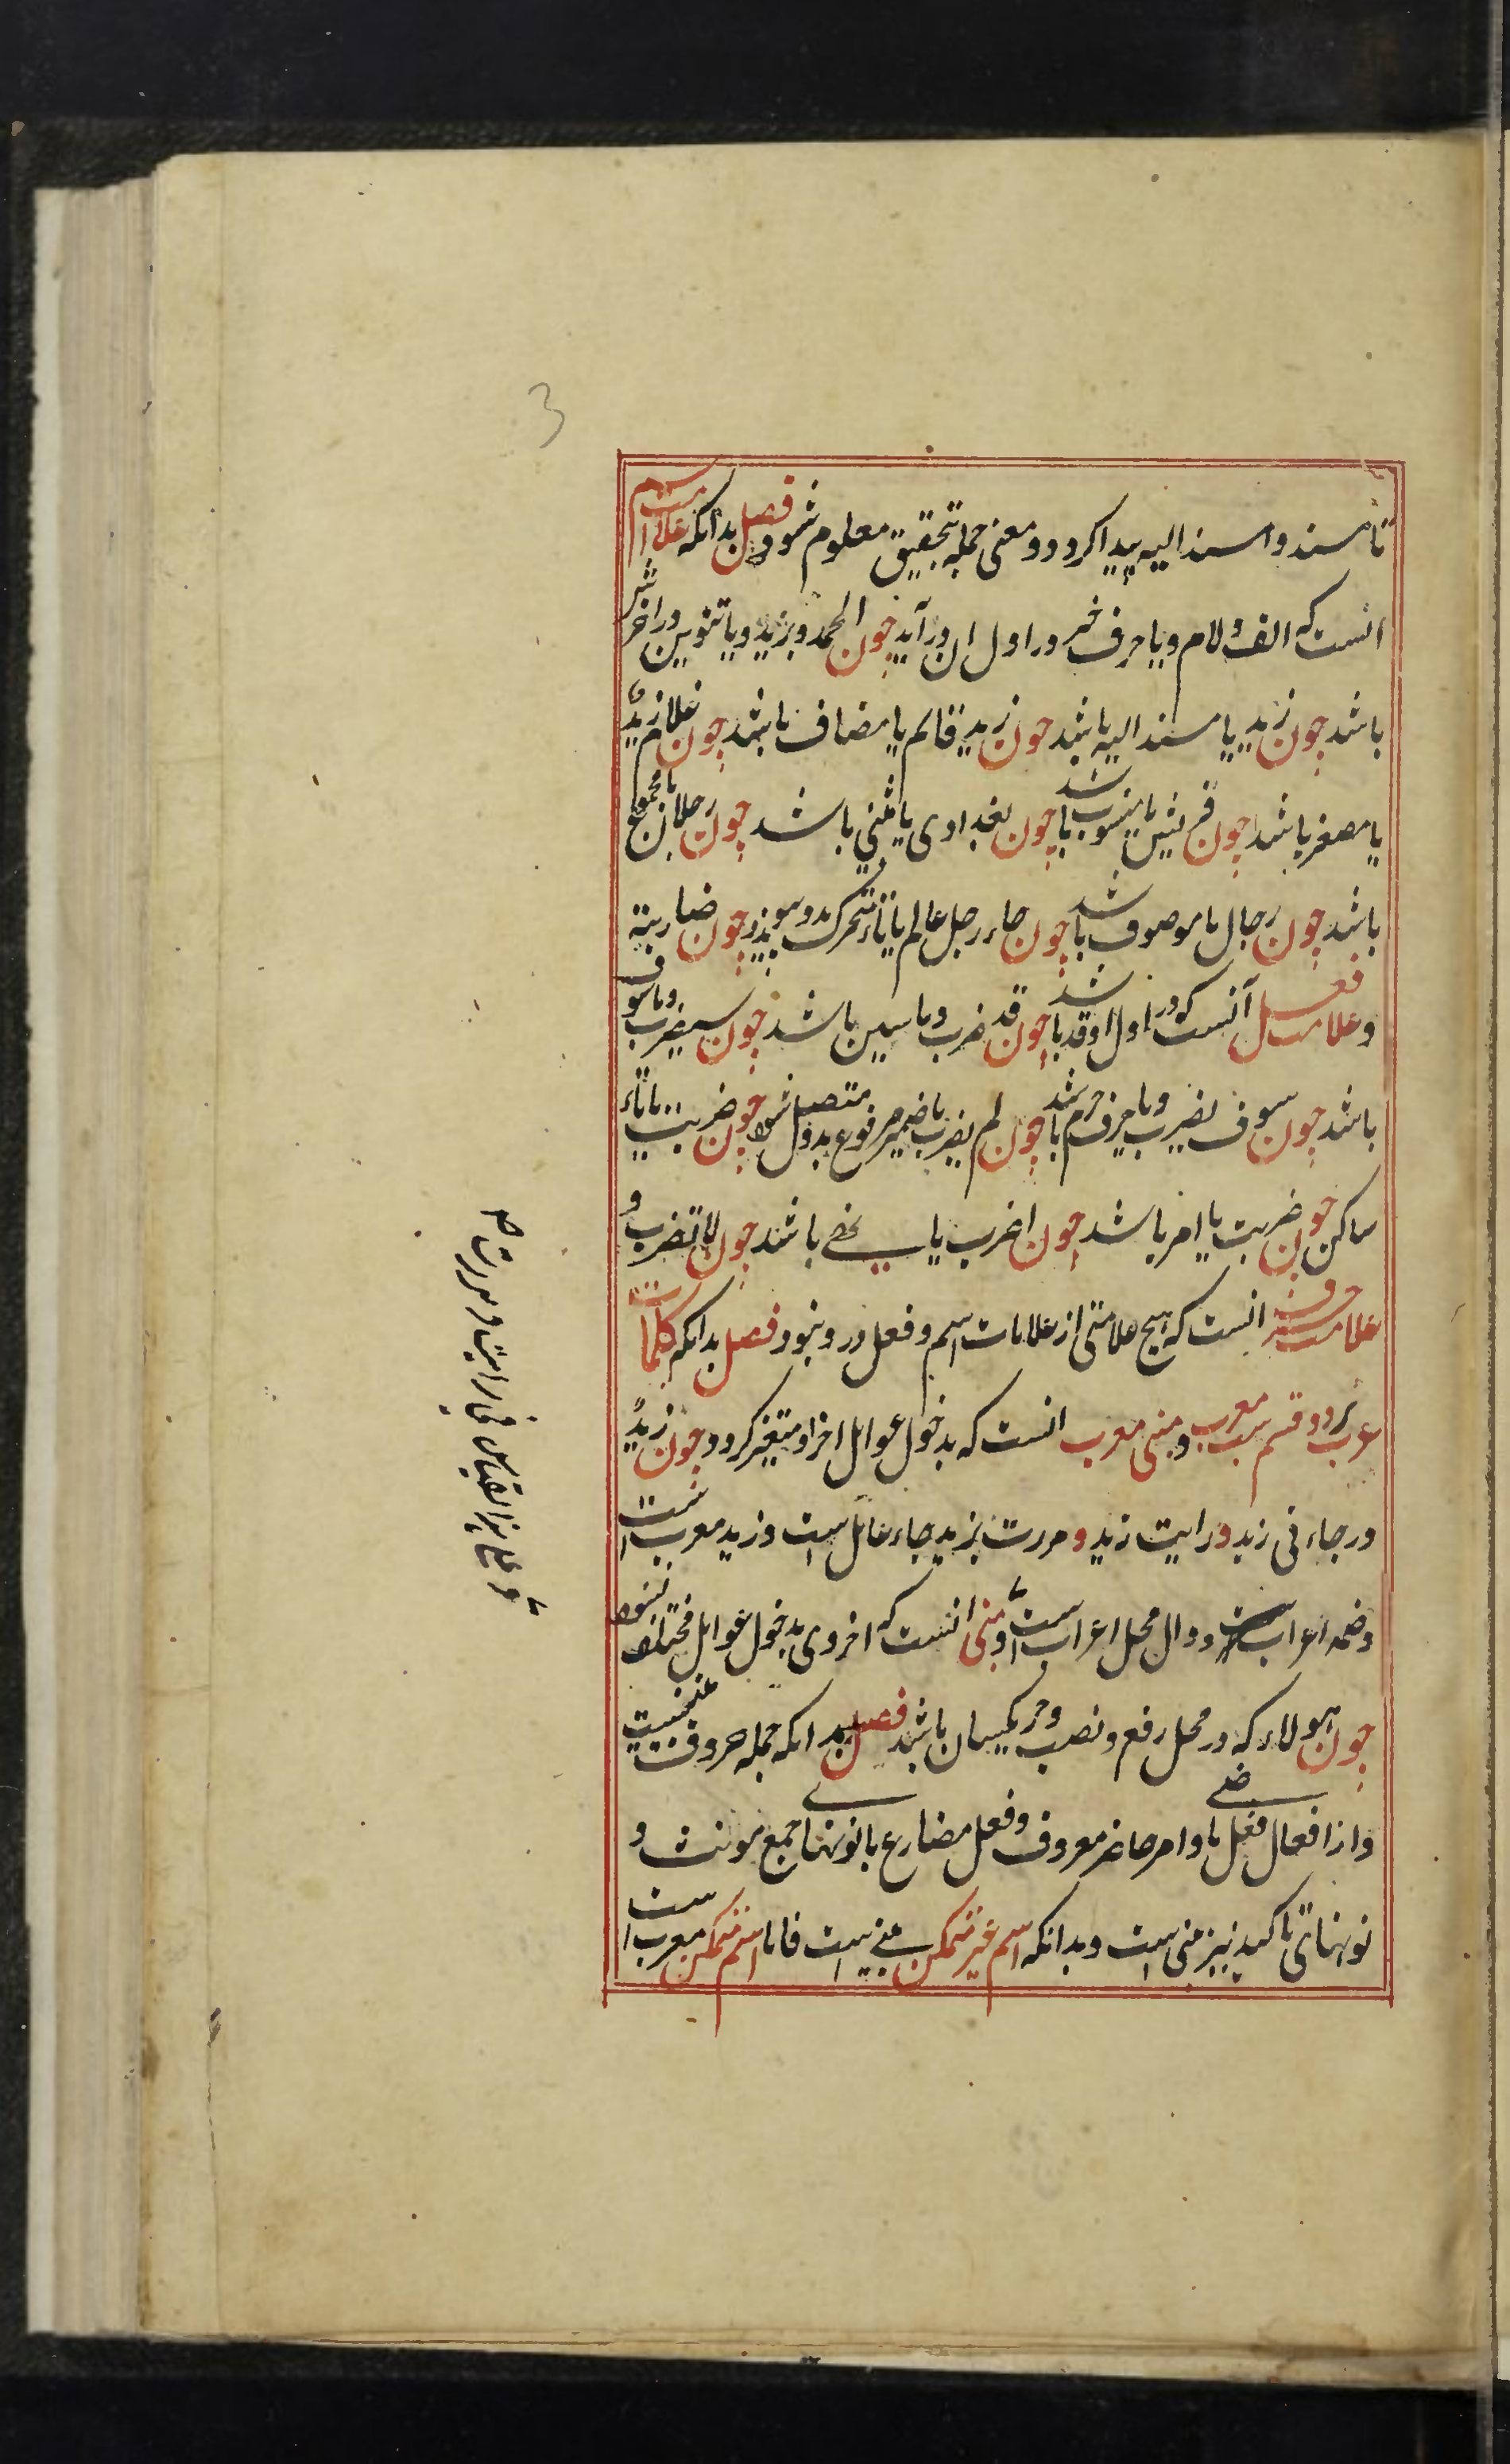 3
تا مسند و مسند الیه پیدا کردد و معنی جمله بتحقیق معلوم شود فصل بدانکه علامت اسم
انست که الف و لام و یا حرف جر در اول ان در آید چون الحمد و بزید و یا تنوین در اخرش
باشد چون زید یا مسند الیه باشد چون زید قائم یا مضاف باشد چون غلام زیدٍ
یا مصغر باشد چون قریش یا منسوب باشد چون بغدادی یا مثنی باشد چون رجلان یا مجموع
باشد چون رجال یا موصوف باشد چون جاء رجل عالم یا تاء متحرک بدو پیوندد چون ضاربة
و علامت فعل آنست که در اول او قد باشد چون قد ضرب و یا سین باشد چون سیضرب و یا سوف
باشد چون سوف یضرب و یا حرف جزم باشد چون لم یضرب یا ضمیر مرفوع متصل بدو شود چون ضربت یا تاء
ساکن چون ضربت یا امر باشد چون اضرب یا نهی باشد چون لا تضرب و
علامت حرف انست که هیچ علامتی از علامات اسم و فعل در و نبود فصل بدانکه کلمات
عرب بر دو قسم ست معرب و مبنی معرب انست که بدخول عوامل اخر او متغیر کردد چون زیدٌ
در جاءنی زید و رایت زید و مررت بزید جاء عامل است و زید معرب است
و ضمه اعراب ست و دال محل اعراب ست و مبنی انست که اخر وی بدخول عوامل مختلف نشود
چون هولاء که در محل رفع و نصب و جر یکسان باشد فصل بدانکه جمله حروف مبنیست
و از افعال فعل ماضی و امر حاضر معروف و فعل مضارع با نونهای جمع مونث و
نونهای تاکید نیز مبنی است و بدانکه اسم غیر متمکن مبنی است فاما اسم متمکن معرب است